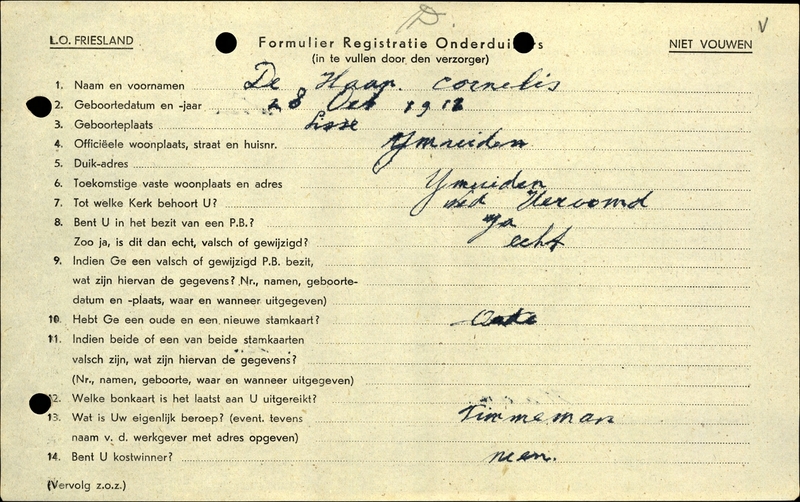 L.O. FRIESLAND
Formulier Registratie Onderduikers
NIET VOUWEN
V
(in te vullen door den verzorger)
1. Naam en voornamen De Haan. Cornelis
2. Geboortedatum en -jaar 28 Oct 1912
3. Geboorteplaats Lisse
4. Officiëele woonplaats, straat en huisnr. Ymuiden
5. Duik-adres
6. Toekomstige vaste woonplaats en adres Ymuiden
7. Tot welke Kerk behoort U? Ned Hervoomd
8. Bent U in het bezit van een P.B.? Ja
Zoo ja, is dit dan echt, valsch of gewijzigd? echt
9. Indien Ge een valsch of gewijzigd P.B. bezit,
wat zijn hiervan de gegevens? Nr., namen, geboorte-
datum en -plaats, waar en wanneer uitgegeven)
10. Hebt Ge een oude en een nieuwe stamkaart?
11. Indien beide of een van beide stamkaarten
valsch zijn, wat zijn hiervan de gegevens?
(Nr., namen, geboorte, waar en wanneer uitgegeven)
12. Welke bonkaart is het laatst aan U uitgereikt?
13. Wat is Uw eigenlijk beroep? (event. tevens Timmeman
naam v. d. werkgever met adres opgeven)
14. Bent U kostwinner? neen.
(Vervolg z.o.z.)